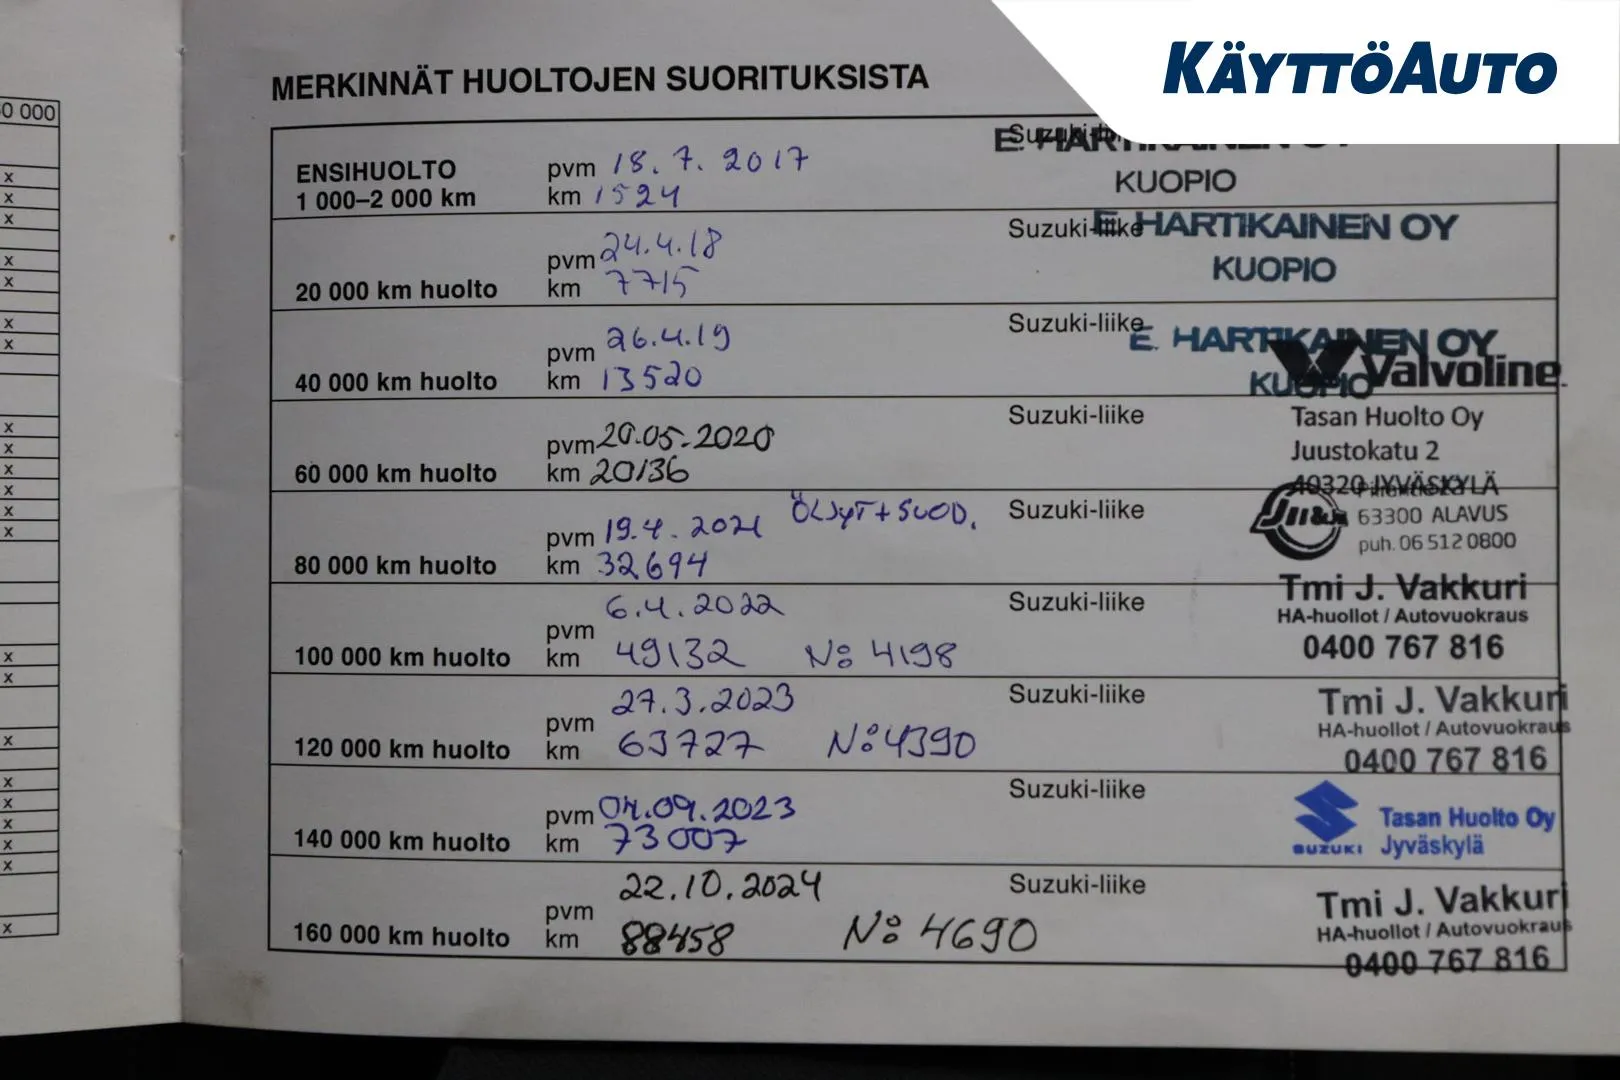 KÄYTTÖAUTO
MERKINNÄT HUOLTOJEN SUORITUKSISTA
0 000
x
x
x
x
x
x
x
x
x
x
x
x
x
x
x
x
x
x
x
x
x
x
ENSIHUOLTO
1 000–2 000 km
pvm 18.7.2017
km 1524
Suzuki-liike
E. HARTIKAINEN OY
KUOPIO
20 000 km huolto
pvm 24.4.18
km 7715
Suzuki-liike
E. HARTIKAINEN OY
KUOPIO
40 000 km huolto
pvm 26.4.19
km 13520
Suzuki-liike
E. HARTIKAINEN OY
KUOPIO
60 000 km huolto
pvm 20.05.2020
km 20136
Suzuki-liike
Valvoline
Tasan Huolto Oy
Juustokatu 2
40320 JYVÄSKYLÄ
80 000 km huolto
pvm 19.4.2021 ÖLJYT+SUOD.
km 32694
Suzuki-liike
63300 ALAVUS
puh. 06 512 0800
100 000 km huolto
pvm 6.4.2022
km 49132 No: 4198
Suzuki-liike
Tmi J. Vakkuri
HA-huollot / Autovuokraus
0400 767 816
120 000 km huolto
pvm 27.3.2023
km 63727 No: 4390
Suzuki-liike
Tmi J. Vakkuri
HA-huollot / Autovuokraus
0400 767 816
140 000 km huolto
pvm 04.09.2023
km 73007
Suzuki-liike
SUZUKI
Tasan Huolto Oy
Jyväskylä
160 000 km huolto
pvm 22.10.2024
km 88458 No: 4690
Suzuki-liike
Tmi J. Vakkuri
HA-huollot / Autovuokraus
0400 767 816